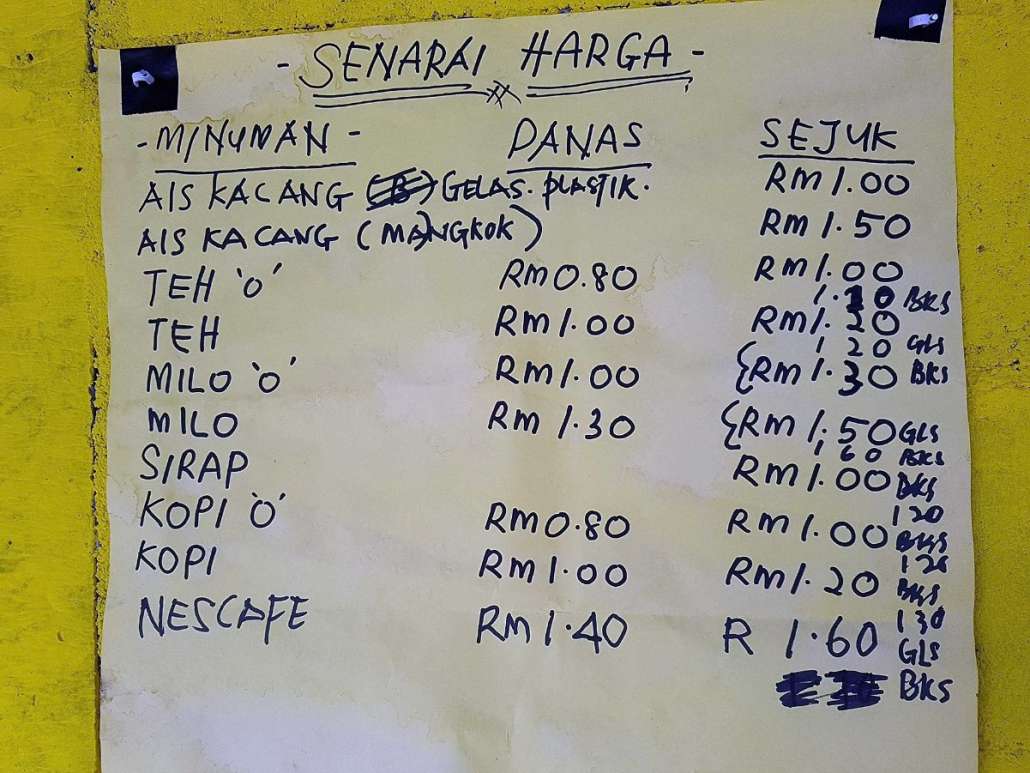 - SENARAI HARGA -
- MINUMAN - PANAS SEJUK
AIS KACANG GELAS. PLASTIK. RM 1.00
AIS KACANG (MANGKOK) RM 1.50
TEH 'O' RM 0.80 RM 1.00
BKS
TEH RM 1.00 RM 1.20
1 20 GLS
MILO 'O' RM 1.00 {RM 1.30 BKS
MILO RM 1.30 {RM 1.50 GLS
1 60 BKS
SIRAP RM 1.00 BKS
1 20
KOPI 'O' RM 0.80 RM 1.00 BKS
KOPI RM 1.00 RM 1.20 BKS
1 30
NESCAFE RM 1.40 R 1.60 GLS
BKS